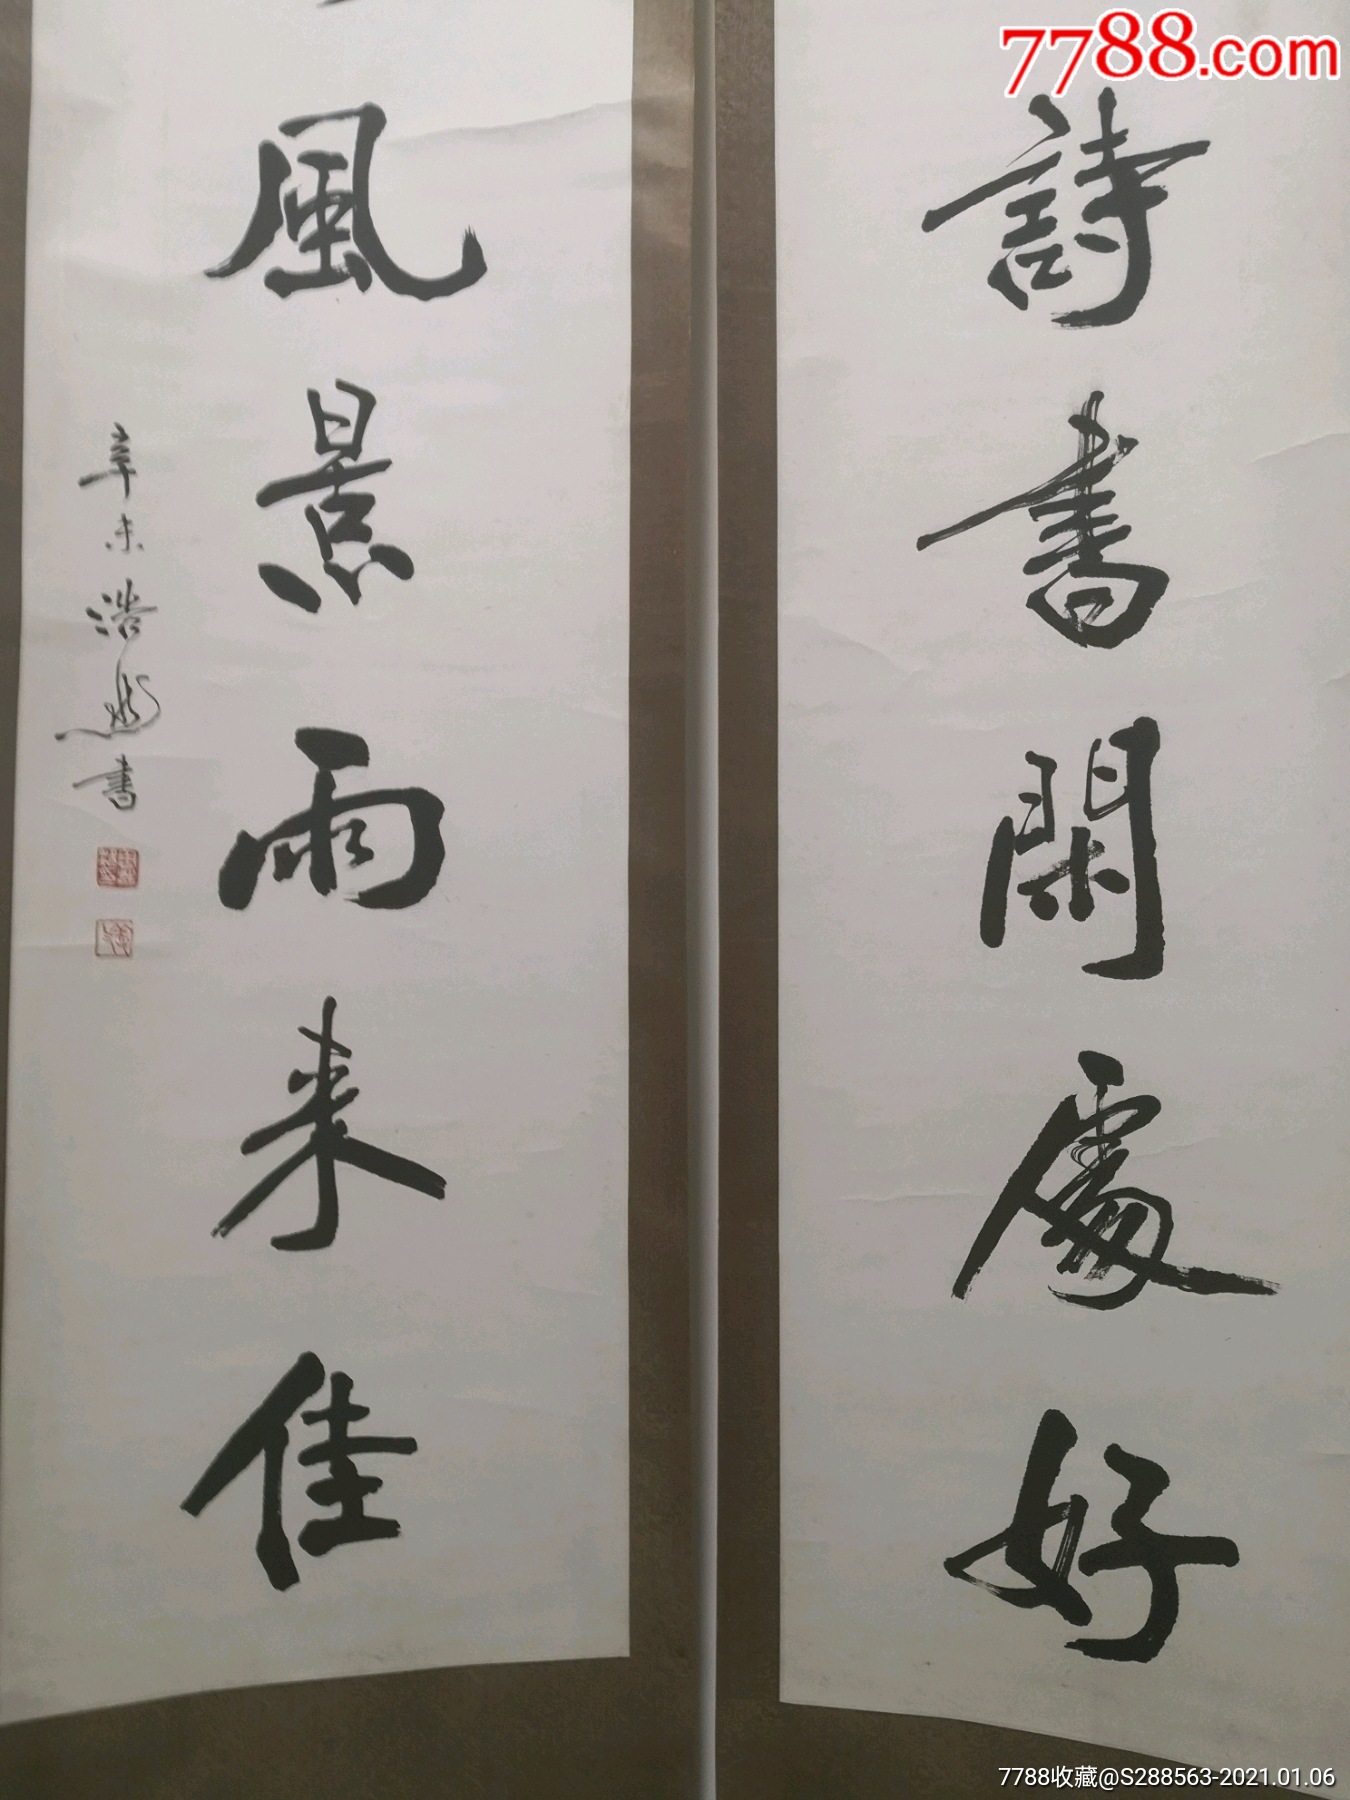 7788.com
詩書閑處好
風景雨来佳
辛未浩然書
7788收藏@S288563-2021.01.06